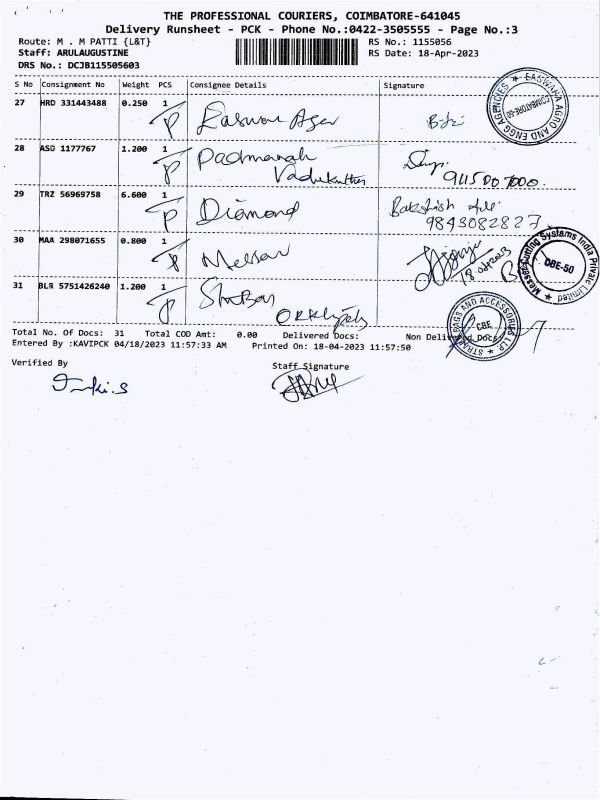 THE PROFESSIONAL COURIERS, COIMBATORE-641045
Delivery Runsheet - PCK - Phone No.:0422-3505555 - Page No.:3
Route: M . M PATTI {L&T} RS No.: 1155056
Staff: ARULAUGUSTINE RS Date: 18-Apr-2023
DRS No.: DCJB115505603
S No Consignment No Weight PCS Consignee Details Signature
27 HRD 331443488 0.250 1
EASWARA AGRO AND ENGG AGENCIES
COIMBATORE-50
28 ASD 1177767 1.200 1 Padmanab
29 TRZ 56969758 6.600 1 Diamond
9843082827
30 MAA 298071655 0.800 1
Systems India Private Limited
CBE-50
31 BLR 5751426240 1.200 1
BAGS AND ACCESSORIES LLP
CBE
Total No. Of Docs: 31 Total COD Amt: 0.00 Delivered Docs: Non Delivered Docs:
Entered By :KAVIPCK 04/18/2023 11:57:33 AM Printed On: 18-04-2023 11:57:50
Verified By Staff Signature